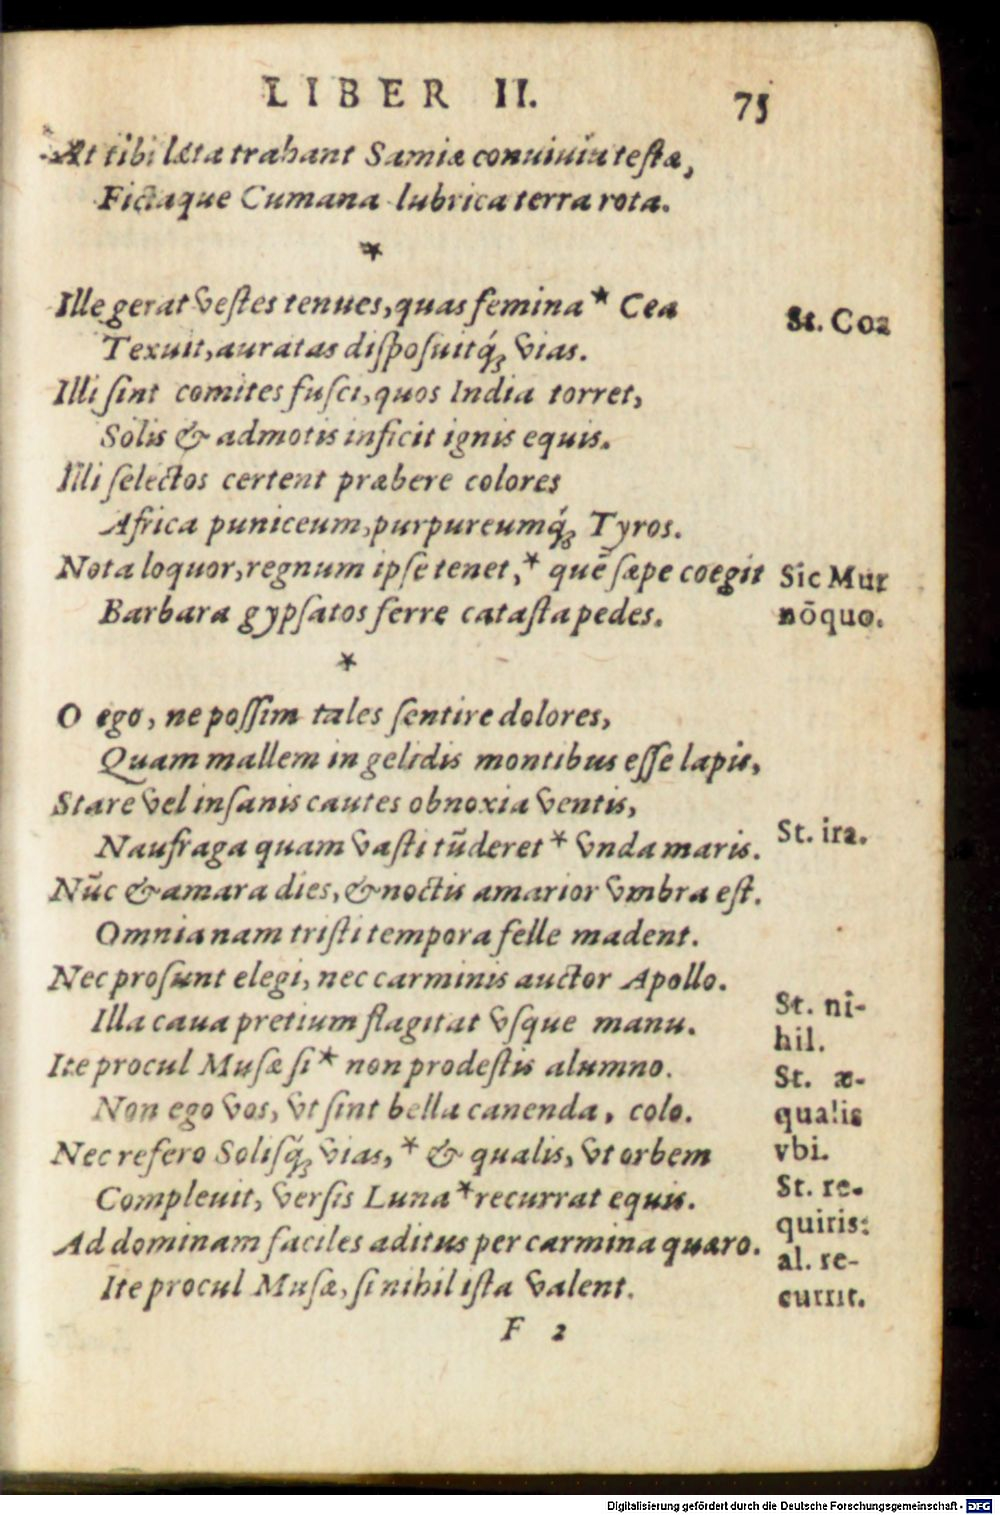 LIBER II. 75
At tibi læta trahant Samiæ conuiuia testæ,
Fictaque Cumana lubrica terra rota.
*
Ille gerat vestes tenues, quas femina * Cea
St. Coa
Texuit, auratas disposuitq́; vias.
Illi sint comites fusci, quos India torret,
Solis & admotis inficit ignis equis.
Illi selectos certent præbere colores
Africa puniceum, purpureumq́; Tyros.
Nota loquor, regnum ipse tenet, * quē sæpe coegit
Sic Mur
Barbara gypsatos ferre catasta pedes.
nō quo.
*
O ego, ne possim tales sentire dolores,
Quam mallem in gelidis montibus esse lapis,
Stare vel insanis cautes obnoxia ventis,
Naufraga quam vasti tūderet * vnda maris.
St. ira.
Nūc & amara dies, & noctis amarior vmbra est.
Omnia nam tristi tempora felle madent.
Nec prosunt elegi, nec carminis auctor Apollo.
Illa caua pretium flagitat vsque manu.
St. ni-
hil.
Ite procul Musæ si * non prodestis alumno.
St. æ-
Non ego vos, vt sint bella canenda, colo.
qualis
Nec refero Solisq́; vias, * & qualis, vt orbem
vbi.
Compleuit, versis Luna * recurrat equis.
St. re-
quiris:
Ad dominam faciles aditus per carmina quæro.
al. re-
Ite procul Musæ, si nihil ista valent.
currit.
F 2
Digitalisierung gefördert durch die Deutsche Forschungsgemeinschaft - DFG